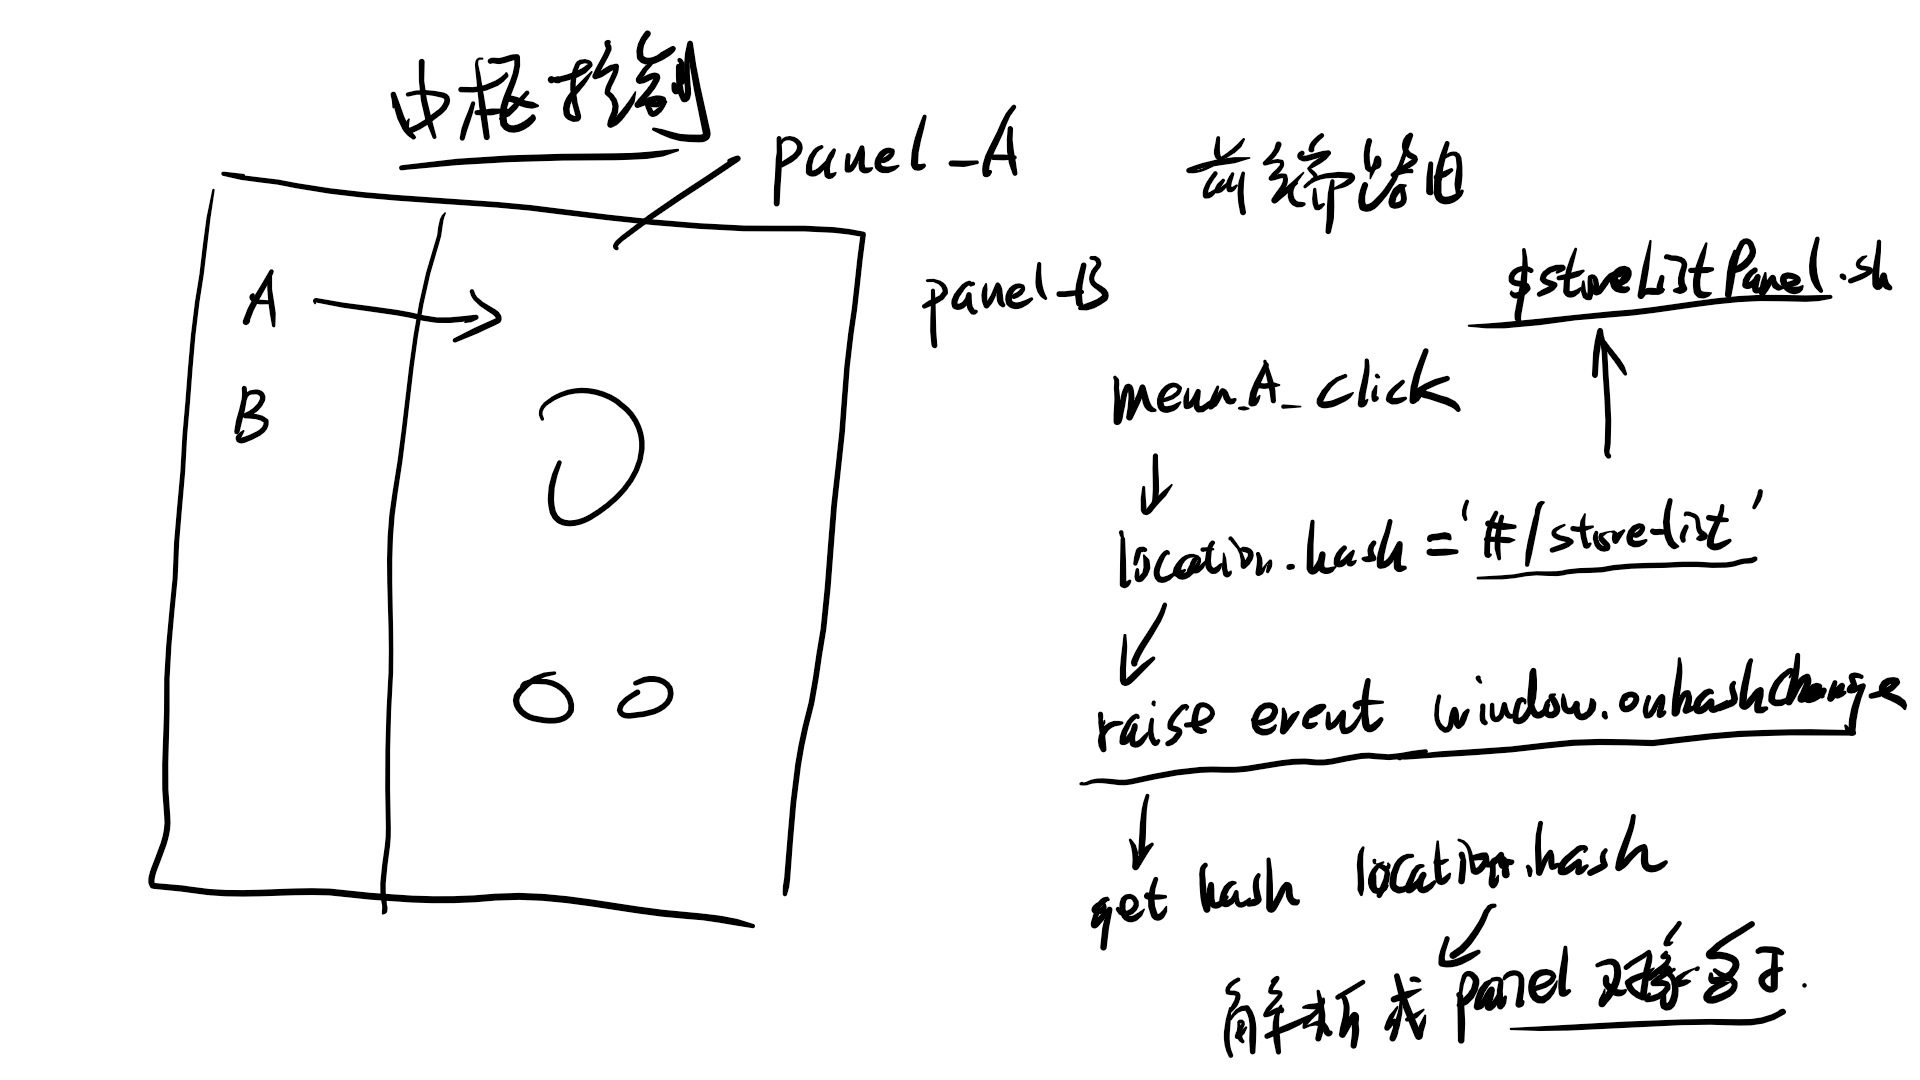 中枢控制
panel_A
前缘路由
panel_B
$storeListPanel.sh
A
B
meun_A_click
location.hash = '#/store-list'
raise event window.onhashchange
get hash location.hash
解析成 panel 对象名字.